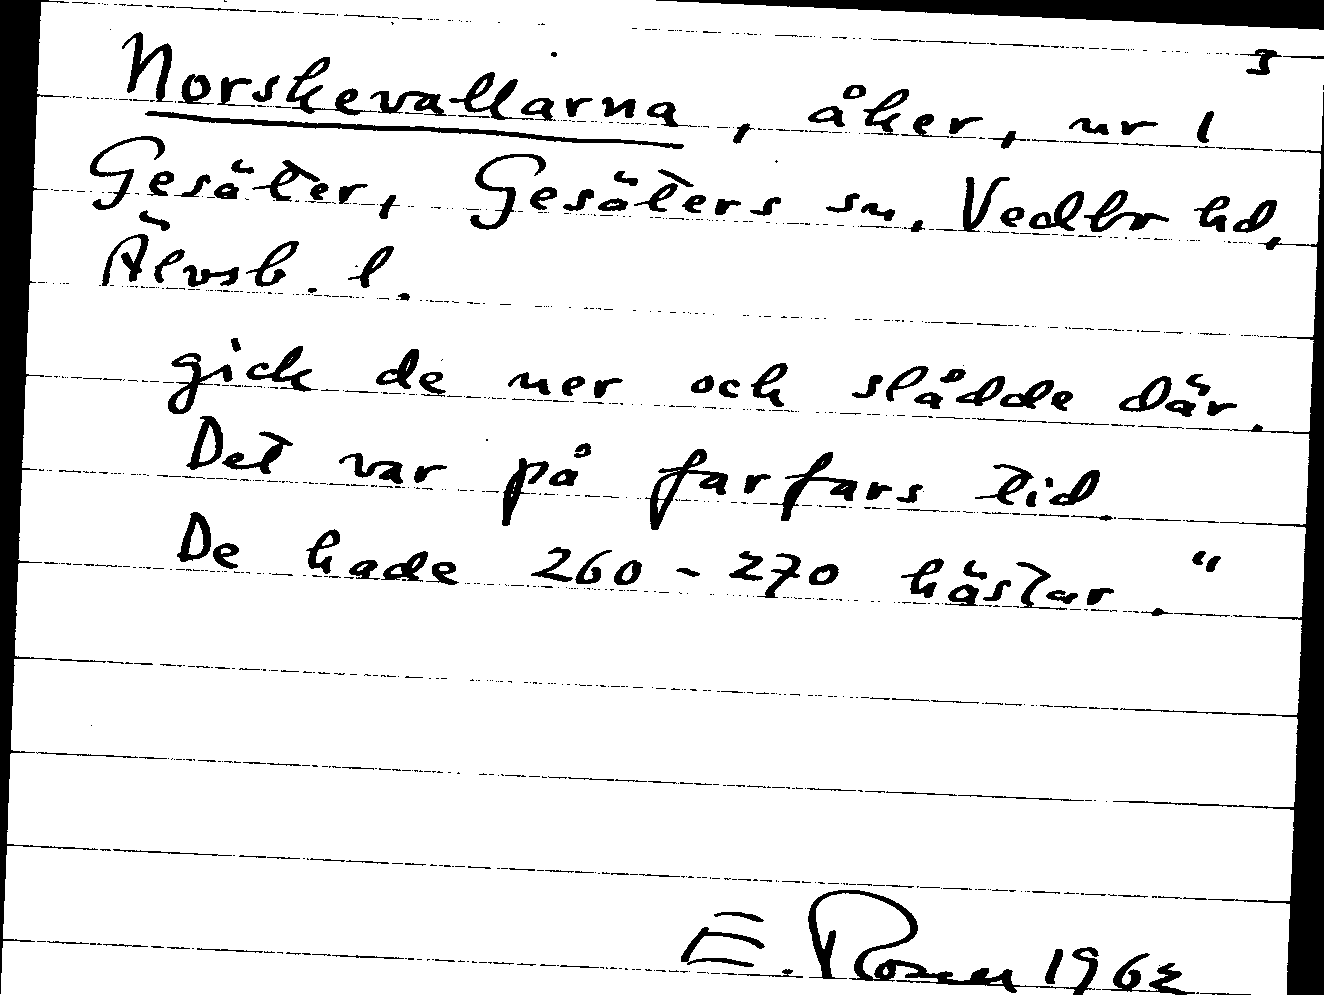 3
Norskevallarna, åker, nr 1
Gesäter, Gesäters sn, Vedbr hd,
Älvsb. l.
gick de ner och slådde där.
Det var på farfars tid.
De hade 260 - 270 hästar."
E. Rosen 1962